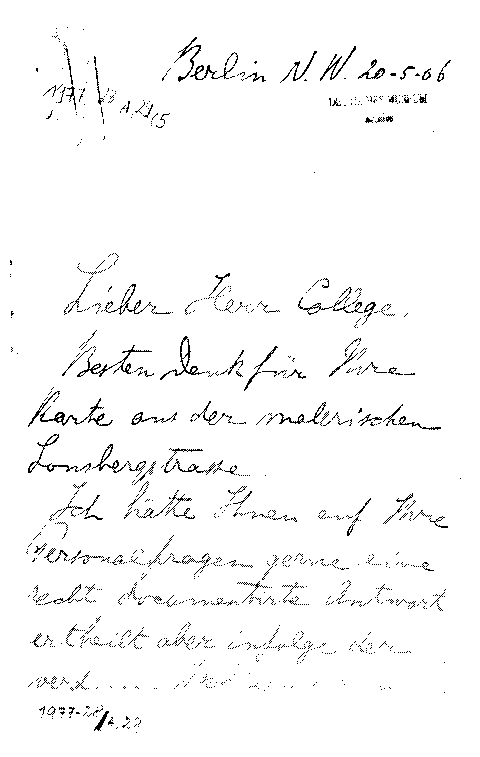 Berlin N.W. 20-5-06
Lieber Herr College.
Besten Dank für Ihre
Karte aus der malerischen
Lonsbergstrasse.
Ich hätte Ihnen auf Ihre
Personalfragen gerne eine
recht documentirte Antwort
ertheilt aber infolge der
1977-28/A,22